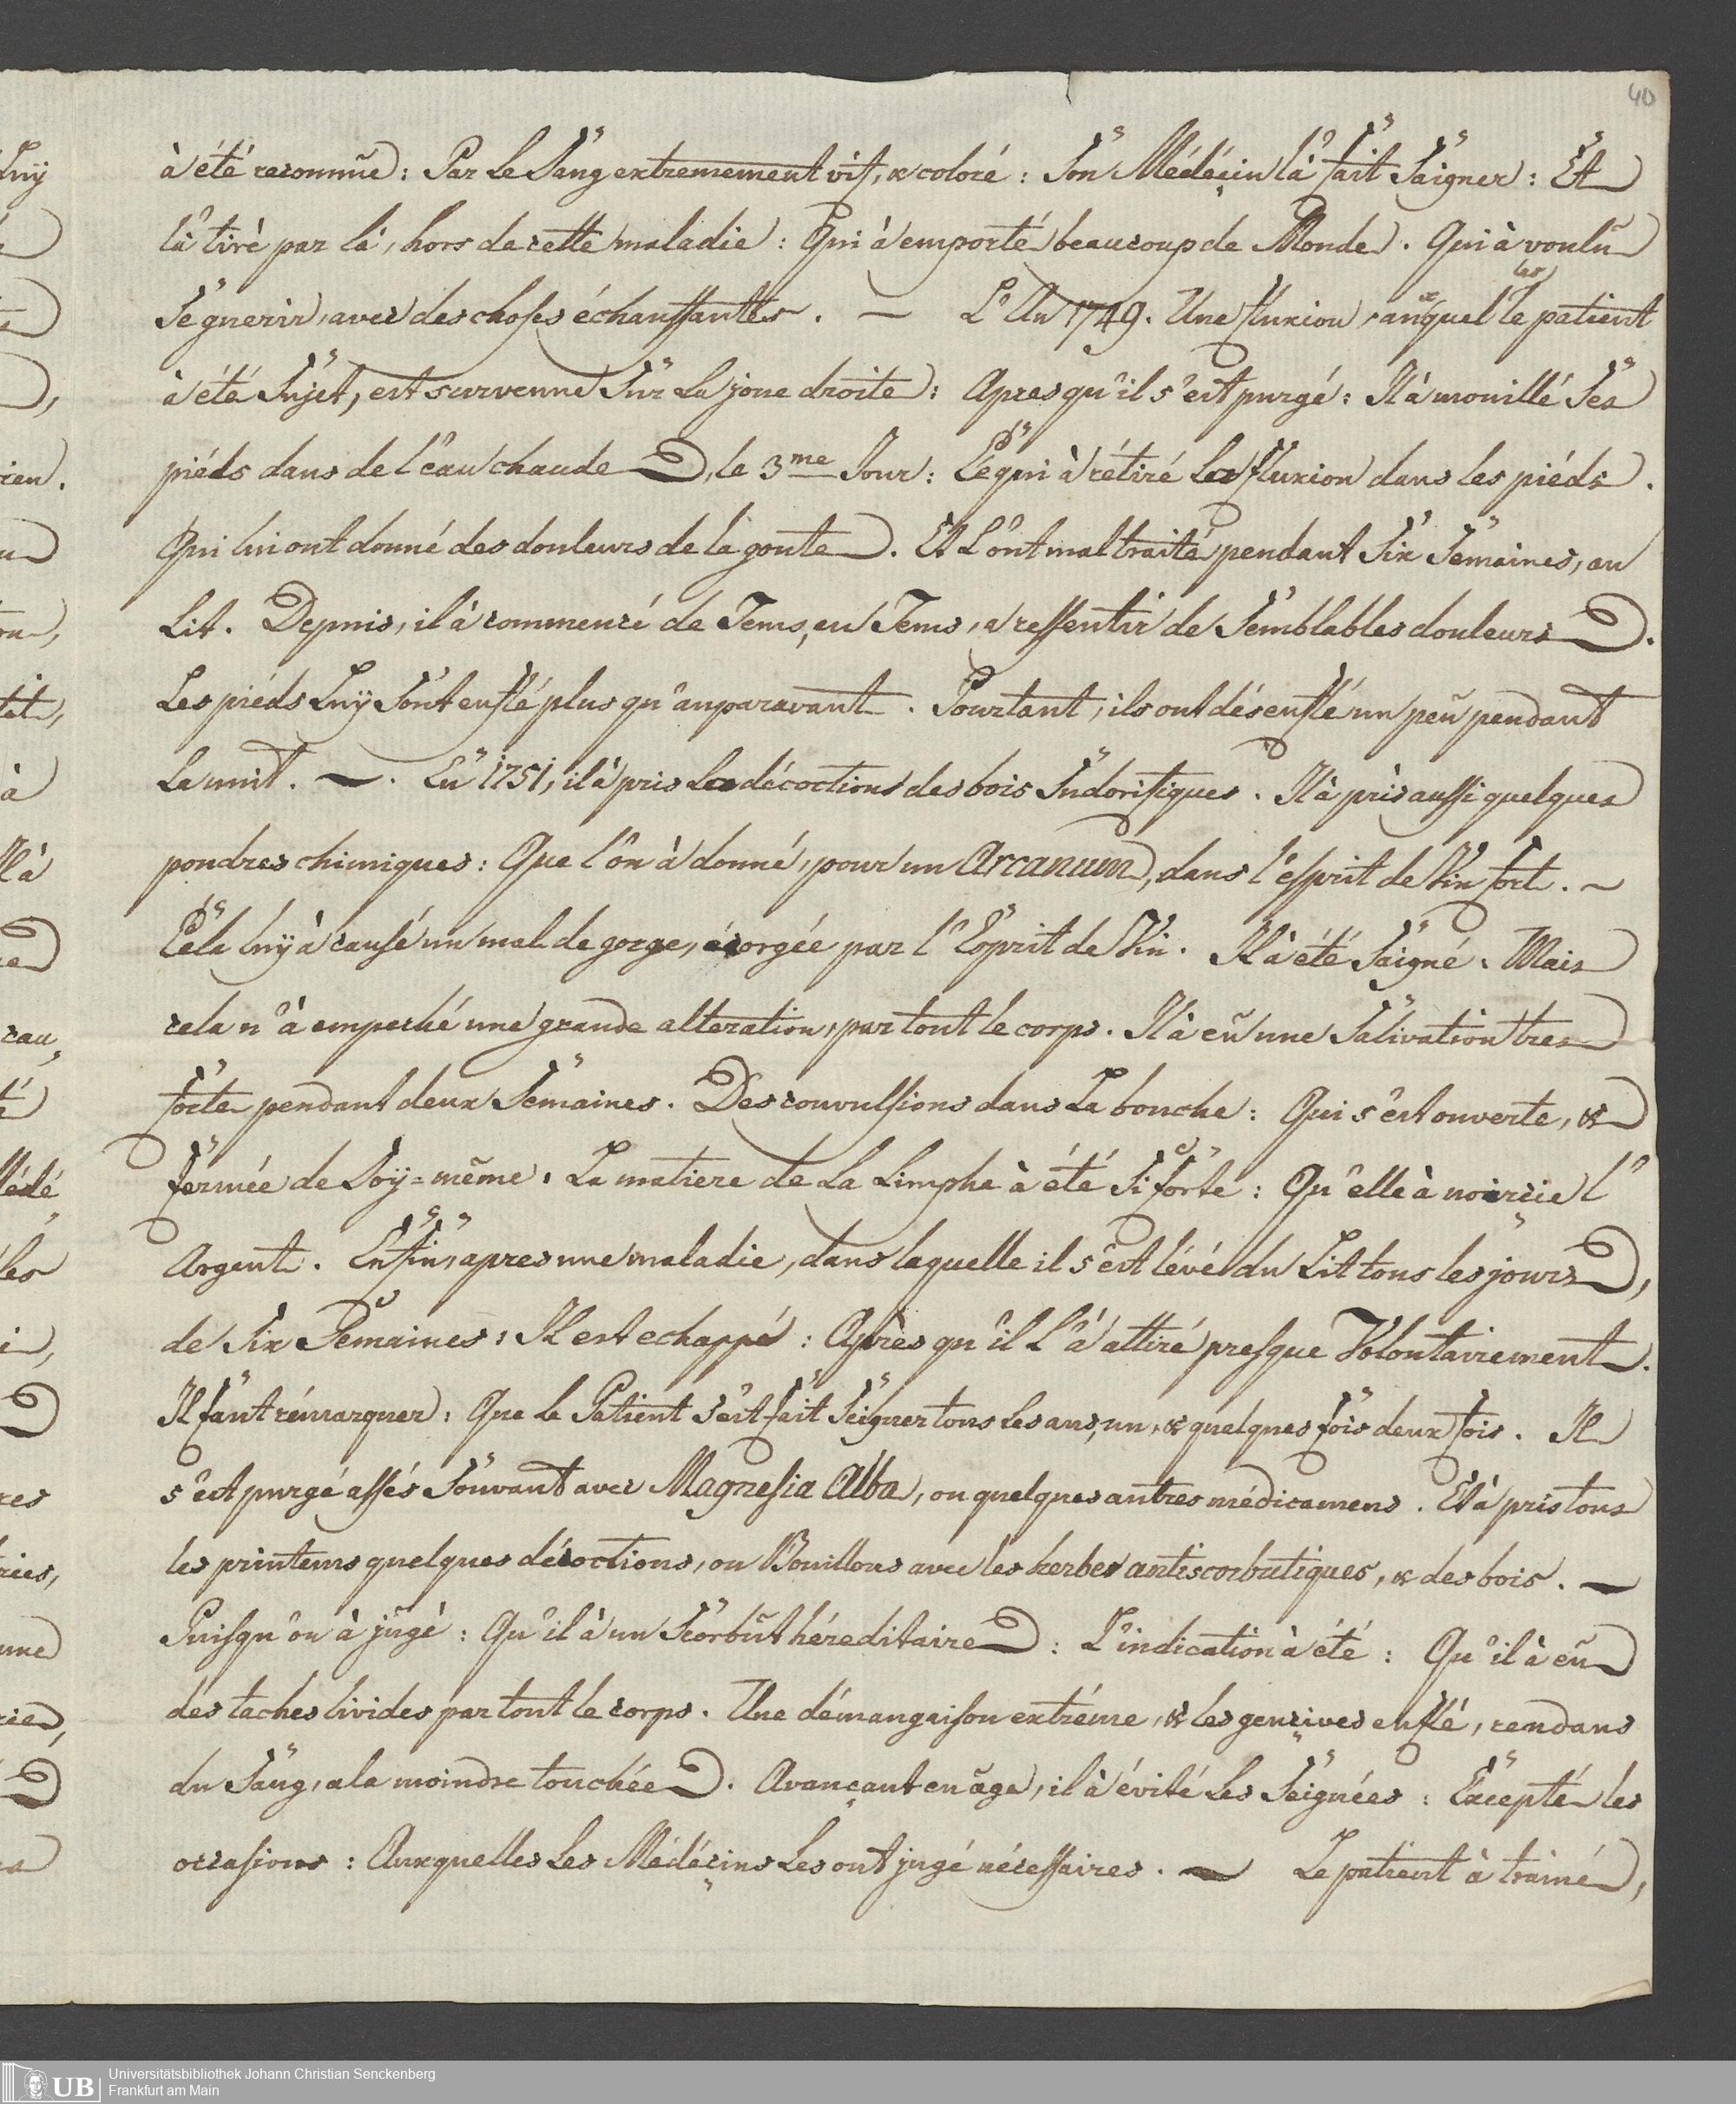 40
à été reconnuë: Par Le Sang extremement vif, & coloré: Son Médéçin l'à fait Saigner: Et
l'à tiré par là, hors de cette maladie: Qui à emporté beaucoup de Monde. Qui à voulû
Se guerir, avec des choses échauffantes. — L'An 1749. Une fluxion, auxquel les le patient
à été Sujet, est survenue Sur La joue droite: Apres qu'il s'est purgé: Il à mouillé Ses
piéds dans de l'eau chaude, le 3me Jour: Ce qui à rétiré La fluxion dans les piéds.
Qui lui ont donné des douleurs de la goute. Et L'ont maltraité pendant Six Semaines, au
Lit. Depuis, il à commencé de Tems, en Tems, a ressentir de Semblables douleurs.
Les piéds Luÿ Sont enflé plus qu'auparavant. Pourtant, ils ont désenflé un peû pendant
La nuit. —. En 1751, il à pris La décoctions des bois Sudorifiques. Il à pris aussi quelques
poudres chimiques: Que l'on à donné, pour un Arcanum, dans l'esprit de Vin fort. ~
Cela luÿ à causé un mal de gorge, écorgée par l'Esprit de Vin. Il à été Saigné. Mais
cela n'à empeché une grande alteration, par tout le corps. Il à eû une Salivation tres
forte pendant deux Semaines. Des convulsions dans La bouche: Qui s'est ouverte, &
fermée de Soÿ=même. La matiere de La Limphe à été Si forte: Qu'elle à noirçie l'
Argent. Enfin, apres une maladie, dans laquelle il s'est lévé du Lit tous les jours,
de Six Semaines: Il est echappé: Après qu'il l'à attiré presque Volontairement.
Il faut rémarquer: Que le Patient s'est fait Seigner tous les ans, un, & quelques fois deux fois. Il
s'est purgé assés Souvant avec Magnesia Alba, ou quelques autres médicamens. Et à pris tous
les printems quelques décoctions, ou Bouillons avec les herbes antiscorbutiques, & des bois. —
Puisqu'on à jûgé: Qu'il à un Scorbût héreditaire: L'indication à été: Qu'il à eû
des taches livides par tout le corps. Une démangaison extréme, & les gençives enflé, rendans
du Sang, a la moindre touchée. Avançant en âge, il à évité Les Seignées: Excepté les
occasions: Auxquelles Les Médéçins Les ont jugé nécessaires. — Le patient à trainé,
Universitätsbibliothek Johann Christian Senckenberg
Frankfurt am Main
UB